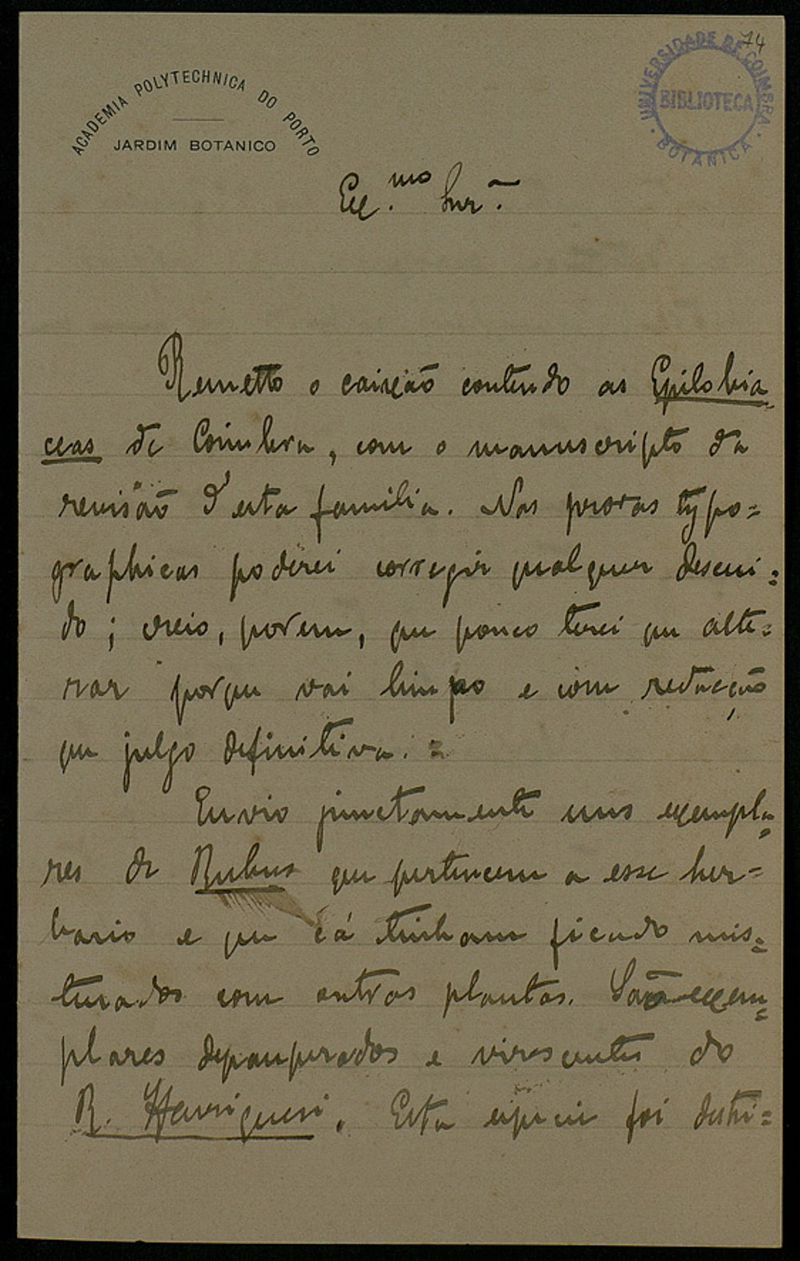 74
ACADEMIA POLYTECHNICA DO PORTO
JARDIM BOTANICO
UNIVERSIDADE DE COIMBRA
BIBLIOTECA
BOTANICA
Ex.mo Snr.
Remetto o caixão contendo as Epilobia-
ceas de Coimbra, com o manuscripto da
revisão d'esta familia. Nas provas typo-
graphicas poderei corregir qualquer descui-
do; creio, porem, que pouco terei que alte-
rar porque vai limpo e com redacção
que julgo definitiva. =
Envio junctamente uns exempla-
res de Rubus que pertencem a esse her-
bario e que cá tinham ficado mis-
turados com outras plantas. São exem-
plares depauperados e virescentes do
R. Henriquesi. Esta especie foi distri-